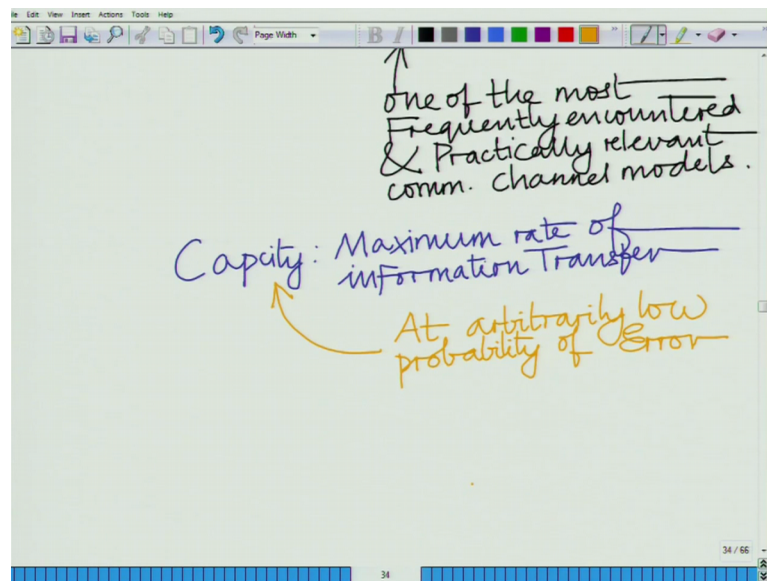 File Edit View Insert Actions Tools Help
Page Width B I
one of the most
Frequently encountered
& Practically relevant
comm. Channel models.
Capcity: Maximum rate of
information Transfer
At arbitrarily low
probability of Error
34 / 66
34